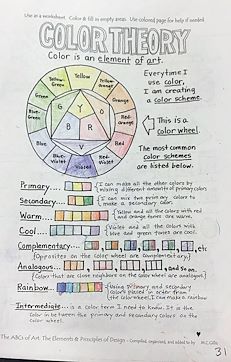 Use as a worksheet. Color & fill in empty areas. Use colored page for help if needed.
COLOR THEORY
Color is an element of art.
Yellow-Green
Yellow
Yellow-Orange
Green
Orange
Blue-Green
Red-Orange
Blue
Red
Blue-Violet
Violet
Red-Violet
G
Y
O
B
R
V
Everytime I
use color,
I am creating
a color scheme.
This is a
color wheel.
The most common
color schemes
are listed below.
Primary....
I can make all the other colors by
mixing different amounts of primary colors
Secondary....
I can mix two primary colors to
make a secondary color.
Warm....
Yellow and all the colors with red
and orange tones are warm.
Cool....
Violet and all the colors with
blue and green tones are cool.
Complementary....
, etc
(Opposites on the color wheel are complementary).
Analogous....
and so on.
(Colors that are close neighbors on the color wheel are analogous).
Rainbow....
Using primary and secondary
colors placed in order from
the color wheel, I can make a rainbow
Intermediate... is a color term I need to know. It is the
color in between the primary and secondary colors on the
color wheel.
The ABCs of Art. The Elements & Principles of Design - Compiled, organized, and added to by M.C. Gillis
31